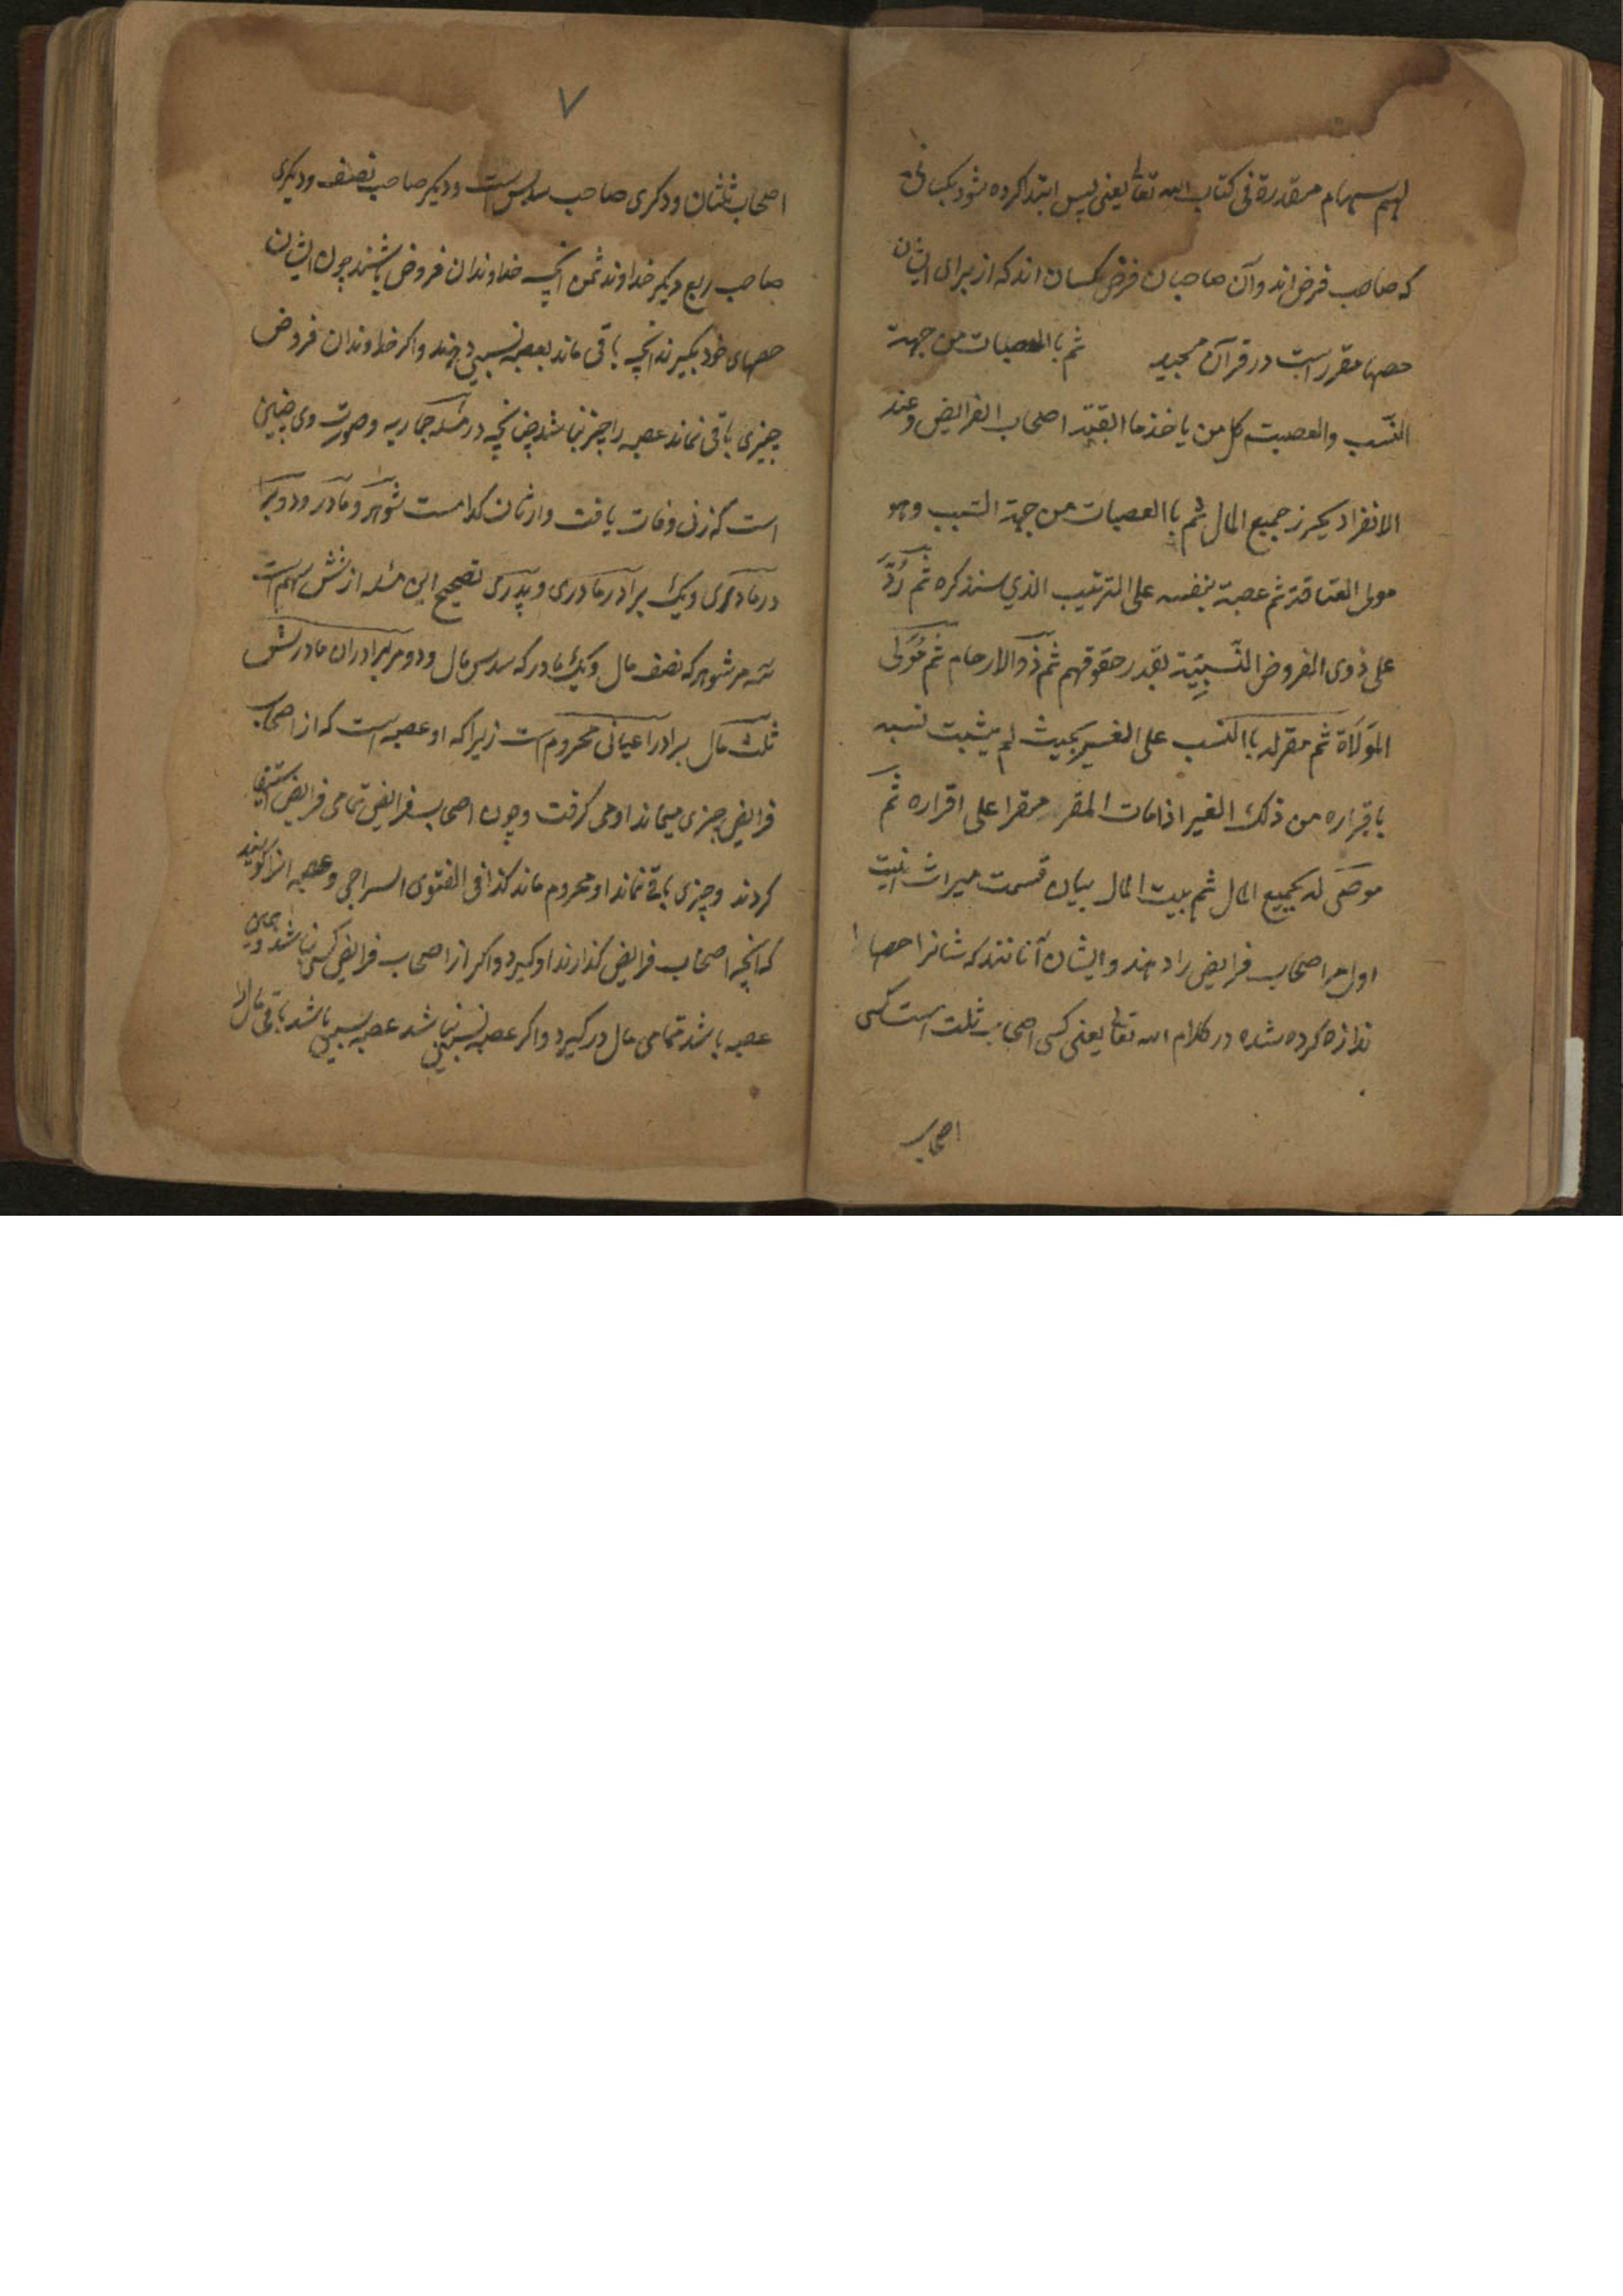 لهم سهام مقدرة فی کتاب الله تعا یعنی پس ابتدا کرده شود بکسانی
که صاحب فرض اند و آن صاحبان فرض کسان اند که از برای ایشان
حصها مقرر است در قرآن مجید ثم باالعصبات من جهة
النسب والعصبت کل من یاخذ ما ابقته اصحاب الفرایض وعند
الانفراد یحرز جمیع المال ثم باالعصبات من جهة السبب وهو
مولی العتاقة ثم عصبة بنفسه علی الترتیب الذی سنذکره ثم رُدَّ
علی ذوی الفروض النَّسَبِیَّة بقدر حقوقهم ثم ذوالارحام ثم مَوْلَی
المَوَلَاة ثم مقرله باالنسب علی الغیر بحیث لم یثبت نسبه
باقراره من ذلک الغیر اذا مات المقر مقرا علی اقراره ثم
موصَی له بجمیع المال ثم بیت المال بیان قسمت میراث اینست
اول مر اصحاب فرایض را دهند و ایشان آنانند که شانرا حصها
ندازه کرده شده در کلام الله تعا یعنی کسی اصحاب ثلث است کسی
اصحاب
۷
اصحاب ثلثان و دکری صاحب سدس است و دیکر صاحب نصف و دیکری
صاحب ربع دیکر خداوند ثمن خداوندان فروض باشند چون ایشان
حصهای خود بکیرند انچه باقی ماند بعصبه نسبی دهند و اکر خداوندان فروض
چیزی باقی نماند عصبه را چیز نباشد چنانچه در مسئله حماریه و صورت وی چنین
است که زنی وفات یافت وارثان کدامست شوهر و مادر و دو برا
در مادری و یک برادر مادری و پدری تصحیح این مسئله از شش سهم است
سه مر شوهر که نصف مال و یک مادر که سدس مال و دو مر برادران مادرش
ثلث مال برادر اعیانی محروم است زیرا که او عصبه است که از اصحاب
فرایض چیزی میماند او می کرفت و چون اصحاب فرایض تمامی فرایض استیفا
کردند و چیزی باقی نماند او محروم ماند کذا فی الفتوی السراجی و عصبه انرا کویند
که انچه اصحاب فرایض کذارند او کیرد و اکر از اصحاب فرایض کسی نباشد
عصبه باشد تمامی مال در کیرد و اکر عصبه نسبی نباشد عصبه سببی باشد باقی مال را